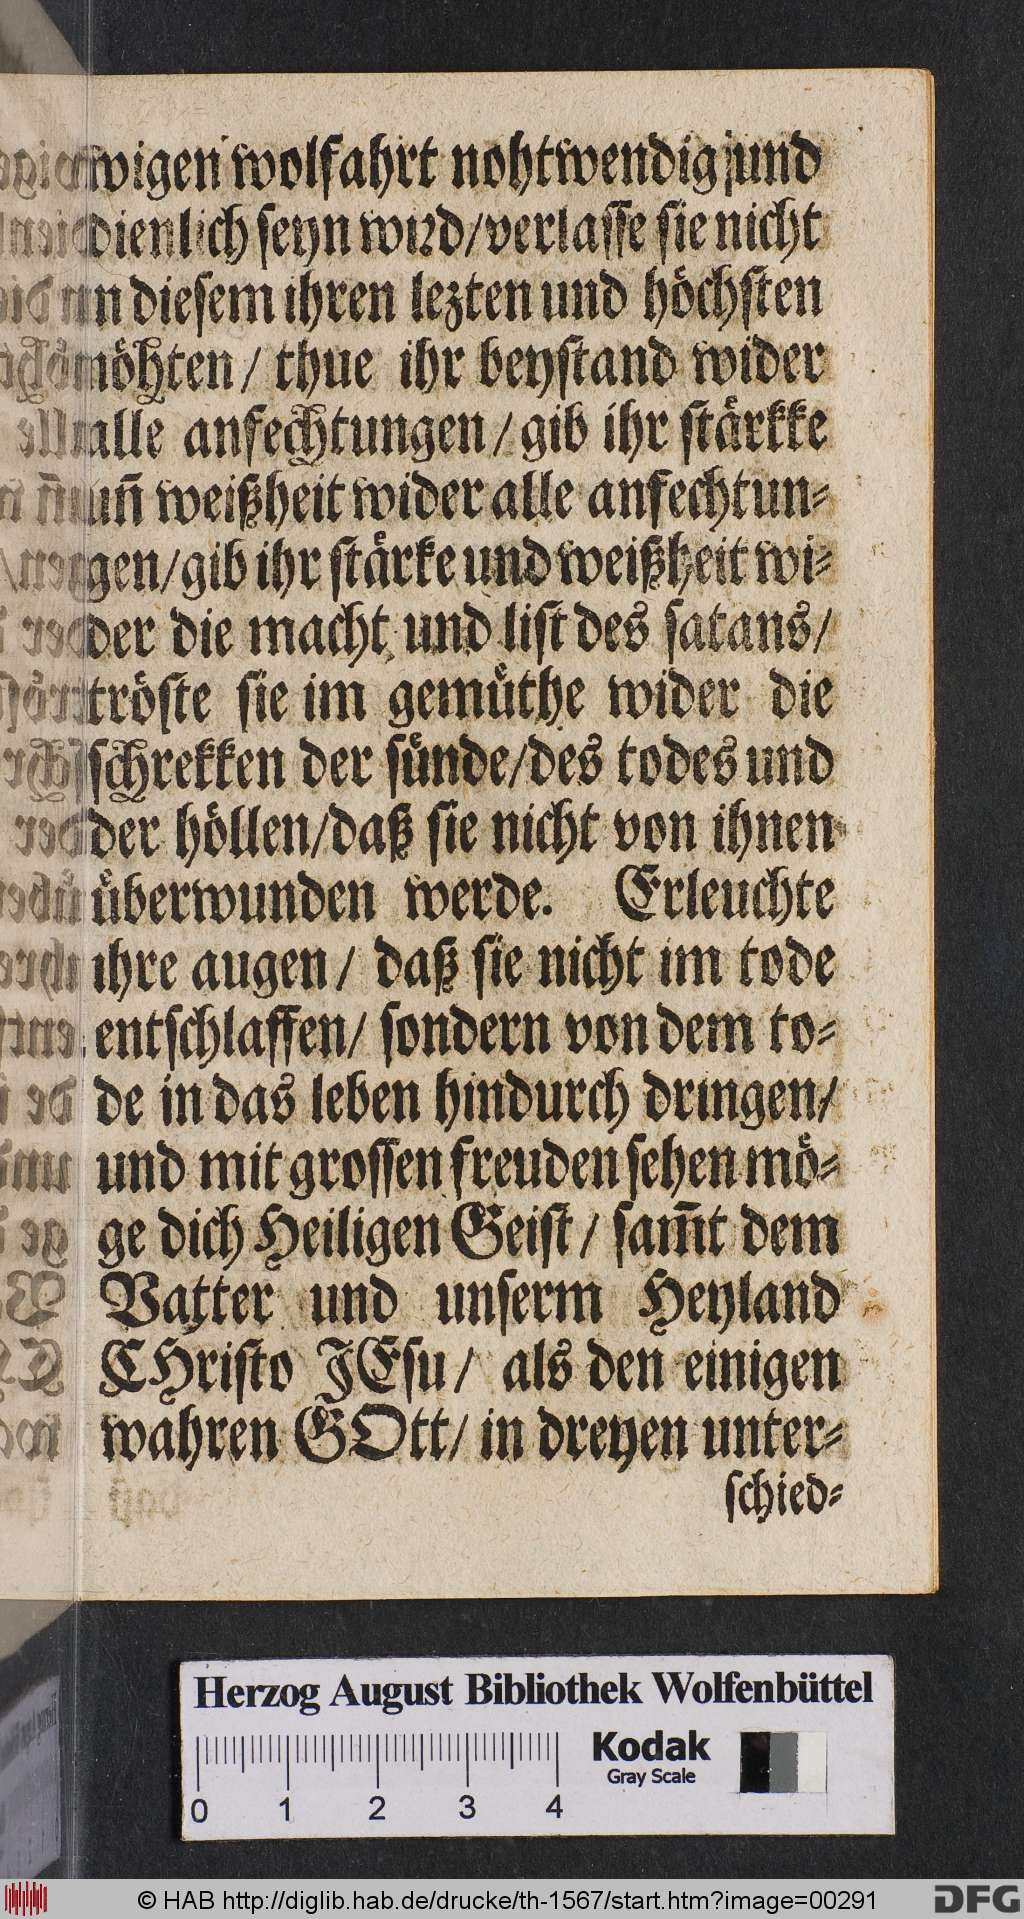 wigen wolfahrt nohtwendig und
dienlich seyn wird/verlasse sie nicht
in diesem ihren lezten und höchsten
nöhten/ thue ihr beystand wider
alle anfechtungen/ gib ihr stärkke
uñ weißheit wider alle anfechtun-
gen/gib ihr stärke und weißheit wi-
der die macht und list des satans/
tröste sie im gemüthe wider die
schrekken der sünde/des todes und
der höllen/daß sie nicht von ihnen
überwunden werde. Erleuchte
ihre augen/ daß sie nicht im tode
entschlaffen/ sondern von dem to-
de in das leben hindurch dringen/
und mit grossen freuden sehen mö-
ge dich Heiligen Geist/ sam̃t dem
Vatter und unserm Heyland
CHristo JEsu/ als den einigen
wahren GOtt/ in dreyen unter-
schied-
Herzog August Bibliothek Wolfenbüttel
Kodak
Gray Scale
0 1 2 3 4
© HAB http://diglib.hab.de/drucke/th-1567/start.htm?image=00291
DFG